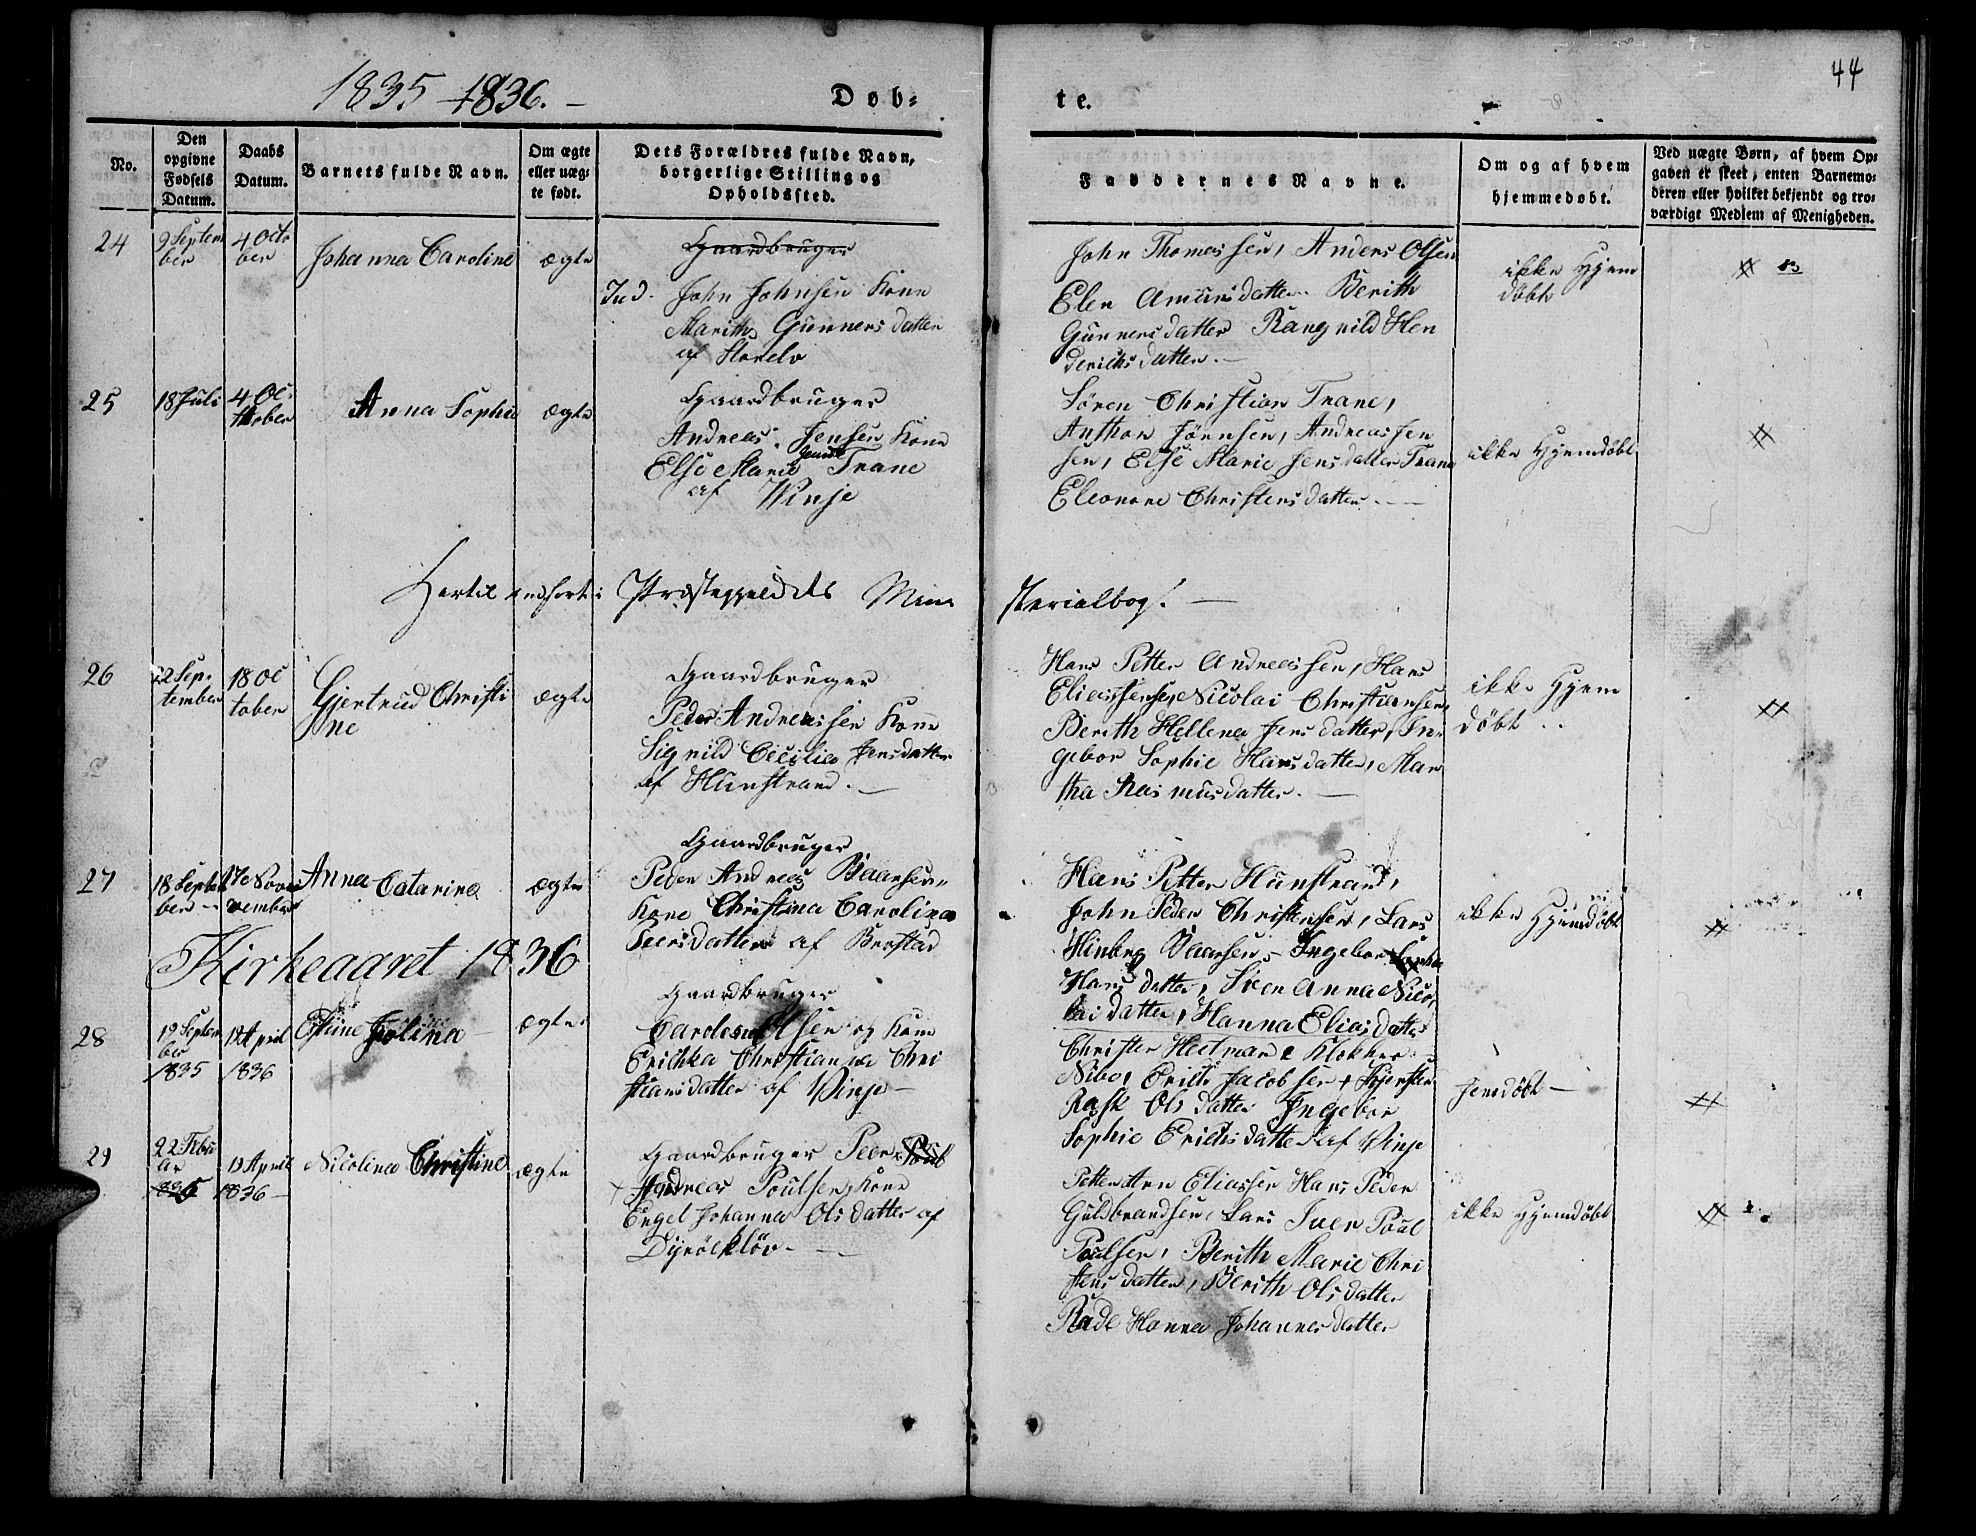 1835-1836.-
Døb-
te.
44
No.
Den opgivne Fødsels Datum.
Daabs Datum.
Barnets fulde Navn.
Om ægte eller uægte født.
Dets Forældres fulde Navn, borgerlige Stilling og Opholdssted.
Faddernes Navne.
Om og af hvem hjemmedøbt.
Ved uægte Børn, af hvem Opgaven er skeet, enten Barnemoderen eller hvilket bekjendt og troværdigt Medlem af Menigheden.
24
9 Septem
ber
4 Octo
ber
Johanna Caroline
ægte
Gaardbruger
Ind. John Johnsen Kone
Marith Gunners datter
af Storelv
John Thomassen, Anders Olsen
Elen Amunsdatter Berith
Gunnersdatter Rangnild Hen
derichsdatter.-
ikke Hjem
døbt
25
18 Juli
4 Oc
tober
Anna Sophie
ægte
Gaardbruger
Andreas Jensen Kone
Else Marie Trane
af Winje
Sören Christian Trane,
Anthon Jörnsen, Andreas Jen
sen, Else Marie Jensdatter Trane
Eleonore Christensdatter.-
ikke Hjemdöbt
Hertil indført i Præstegjeldets Mini
sterialbog.-
26
22 Sep-
tember
18 Oc
tober
Gjertrud Christi
ne
ægte
Gaardbruger
Peder Andreassen Kone
Signild Cecilia Jensdatter
af Hunstrand.-
Hans Petter Andreassen, Hans
Eliassen, Nicolai Christiansen,
Berith Hellena Jensdatter, In-
gebor Sophie Hansdatter, Mar
tha Rasmusdatter.-
ikke Hjem
döbt
27
18 Septem
ber
17 Nov
vember
Anna Catarina
ægte
Gaardbruger
Peder Andreas Baarsen
Kone Christina Carolina
Peersdatter af Brøstad
Hans Petter Hunstrand,
John Peder Christensen, Lars
Hinberg Baarsen Ingebor Sophia
Hans datter, Anna Nico
lai datter, Hanna Elias datter
ikke Hjemdöbt
Kirkeaaret 1836
28
19 Septem
ber
1835
April
1836
Jolina
ægte
Gaardbruger
Olsen og Kone
Erichka Christianna Chri
stiansdatter af Vinje-
Christen Heitman Klokker
Nibo, Erik Jacobsen Kjersten
Rask Olsdatter Ingebor
Sophie Erichsdatter af Vinje
Jemdöbt-
29
22 Febru
ar
1836
April
1836-
Nicolina Christine
ægte
Gaardbruger Peer Poul
Andreas Poulsen Kone
Engel Johanna Olsdatter af
Dyröekløv-
Petter Arn Eliassen Hans Peder
Guldbrandsen, Lars Iver Poul
Poulsen, Berith Marie Chri
stens datter, Berith Olsdatter
Hanna Johannesdatter
ikke Hjemdöbt